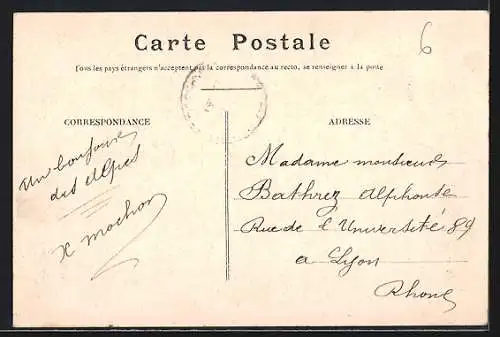 Carte Postale
Tous les pays étrangers n'acceptent pas la correspondance au recto, se renseigner à la poste
6
CORRESPONDANCE
Un bonjour
des Alpes
X Mochon
ADRESSE
Madame monsieur
Bathrez Alphonse
Rue de l'Université 89
a Lyon
Rhone